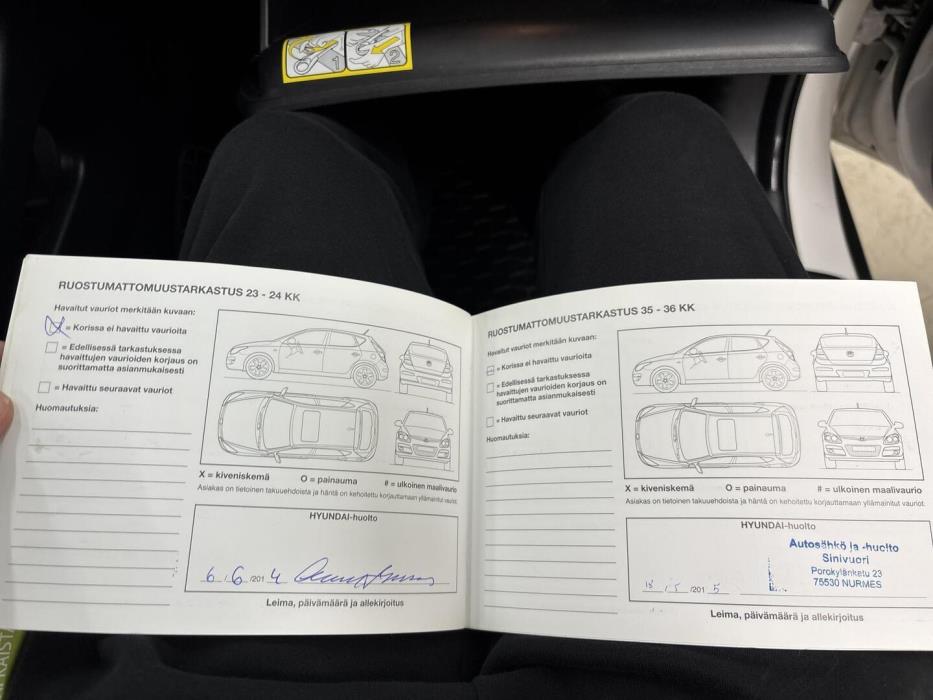 1
2
RUOSTUMATTOMUUSTARKASTUS 23 - 24 KK
Havaitut vauriot merkitään kuvaan:
X = Korissa ei havaittu vaurioita
= Edellisessä tarkastuksessa
havaittujen vaurioiden korjaus on
suorittamatta asianmukaisesti
= Havaittu seuraavat vauriot
Huomautuksia:
X = kiveniskemä O = painauma # = ulkoinen maalivaurio
Asiakas on tietoinen takuuehdoista ja häntä on kehoitettu korjauttamaan yllämainitut vauriot.
HYUNDAI-huolto
6 / 6 /201 4
Leima, päivämäärä ja allekirjoitus
RUOSTUMATTOMUUSTARKASTUS 35 - 36 KK
Havaitut vauriot merkitään kuvaan:
= Korissa ei havaittu vaurioita
= Edellisessä tarkastuksessa
havaittujen vaurioiden korjaus on
suorittamatta asianmukaisesti
= Havaittu seuraavat vauriot
Huomautuksia:
X = kiveniskemä O = painauma # = ulkoinen maalivaurio
Asiakas on tietoinen takuuehdoista ja häntä on kehoitettu korjauttamaan yllämainitut vauriot.
HYUNDAI-huolto
Autosähkö ja -huolto
Sinivuori
Porokylänkatu 23
75530 NURMES
/ 5 /201 5
Leima, päivämäärä ja allekirjoitus